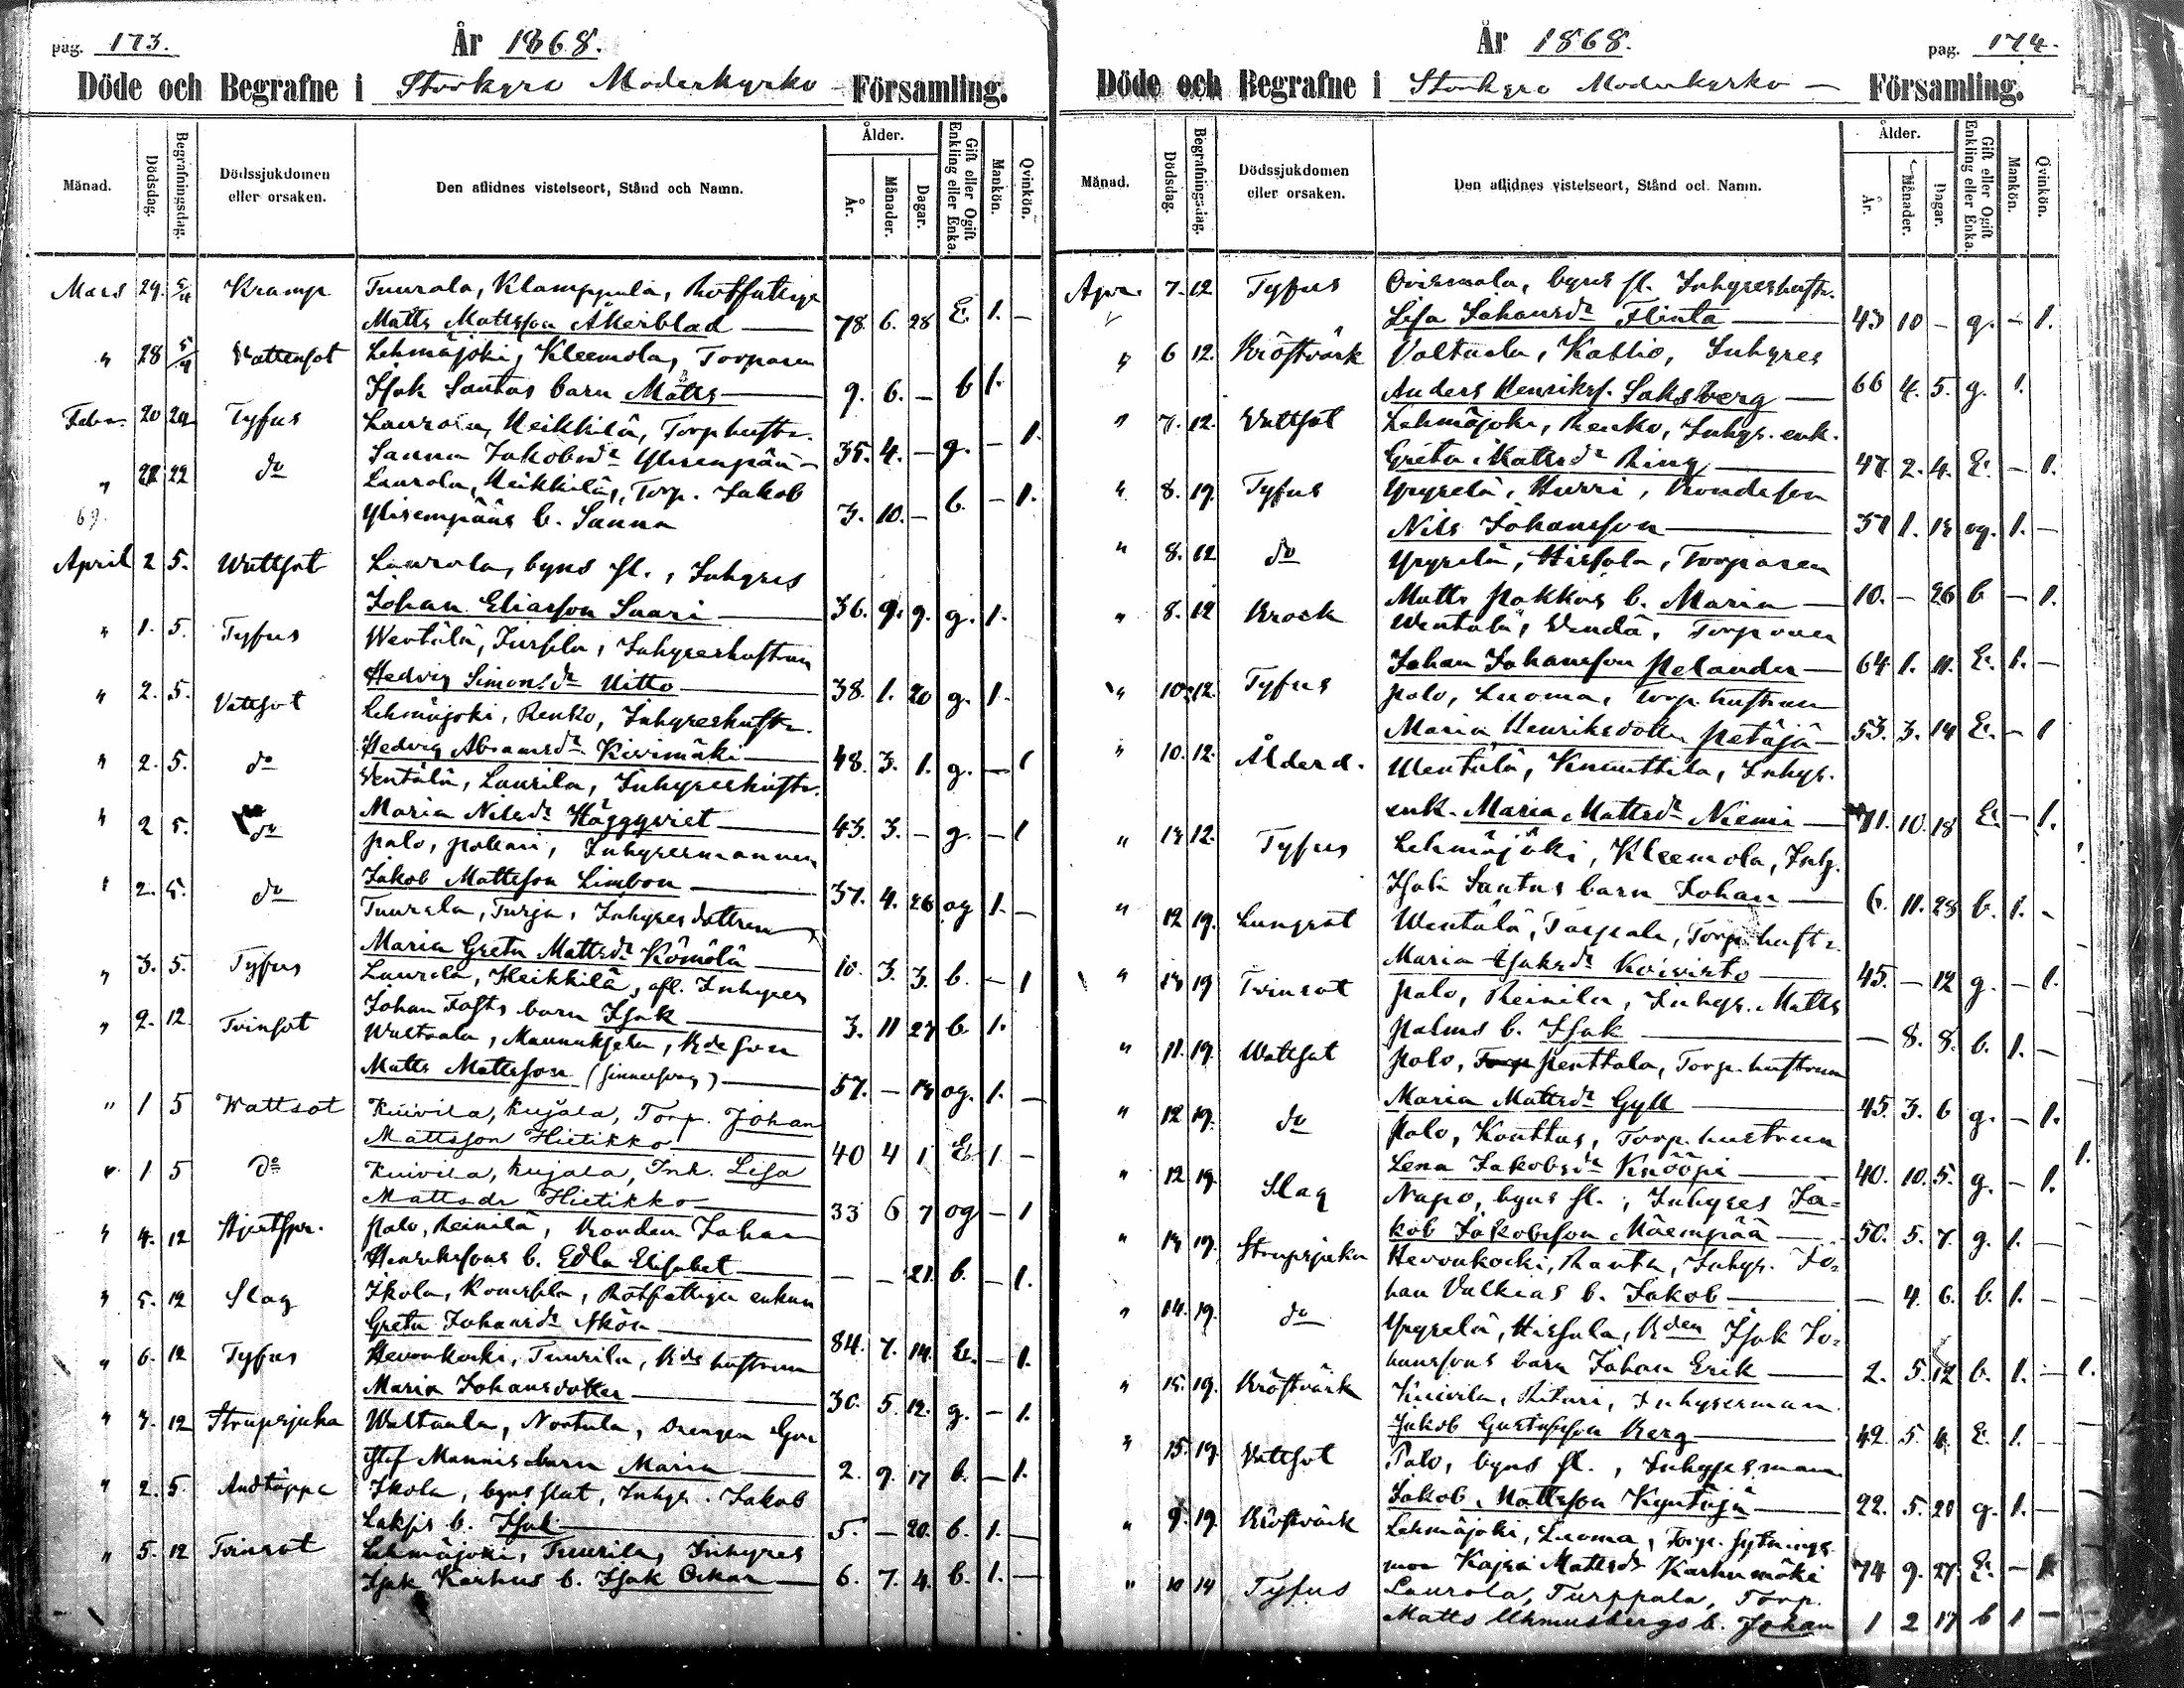 pag. 173.
År 1868.
Döde och Begrafne i Storkyro Moderkyrko Församling.
Månad. Dödsdag. Begrafningsdag. Dödssjukdomen eller orsaken. Den aflidnes vistelseort, Stånd och Namn. Ålder. År. Månader. Dagar. Gift eller Ogift Enkling eller Enka. Mankön. Qvinkön.
Mars 29. 5/4 Kramp Tuurala, Klamppula, Rotfattige
Matts Mattsson Åkerblad 78. 6. 28 E. 1. —
" 28 5/4 Vattensot Lehmäjoki, Kleemola, Torparen
Isak Santas barn Matts 9. 6. — b 1.
Febr. 20 22 Tyfus Laurola, Heikkilä, Torp hustr.
Sanna Jakobsdr Ylisenpää 35. 4. — g. — 1.
" 21 22 do Laurola, Heikkilä, Torp. Jakob
69.
Ylisenpääs b. Sanna 3. 10. — b. — 1.
April 2 5. Wattsot Laurola, byns fl., Inhyres
Johan Eliasson Saari 36. 9. 9. g. 1.
" 1. 5. Tyfus Wentälä, Jussila, Inhyreshustrun
Hedvig Simonsdr Uitto 38. 1. 20 g. 1.
" 2. 5. Vattsot Lehmäjoki, Renko, Inhyreshustr.
Hedvig Abramsdr Kivimäki 48. 3. 1. g. — 1
" 2. 5. do Ventälä, Laurila, Inhyreshustr.
Maria Nilsdr Häggqvist 43. 3. — g. — 1
" 2 5. do Palo, Pollari, Inhyresmannen
Jakob Mattsson Limbon 37. 4. 26 og 1. —
" 2. 5. do Tuurala, Turja, Inhyresdottren
Maria Greta Mattsdr Kömölä 10. 3. 3. b. — 1
" 3. 5. Tyfus Laurola, Heikkilä, afl. Inhyres
Johan Fasts barn Isak 3. 11 27 b. 1.
" 2. 12 Tvinsot Waltaala, Maunuksela, Bde son
Matts Mattsson (sinnessvag) 57. — 13 og. 1. —
" 1 5 Wattsot Kuivila, Kujala, Torp. Johan
Mattsson Hietikko 40 4 1 E 1 —
" 1 5 do Kuivila, Kujala, Inh. Lisa
Mattsdr Hietikko 33 6 7 og — 1
" 4. 12 Hjertspr. Palo, Reinilä, Bonden Johan
Henrikssons b. Edla Elisabet — — 21. b. — 1.
" 5. 12 Slag Ikola, Rotfattige enkan
Greta Johansdr Skön 84. 7. 14. E. — 1.
" 6. 12 Tyfus Hevonkoski, Tuurila, Bde hustrun
Maria Johansdotter 30. 5. 12. g. — 1.
" 7. 12 Strupsjuka Waltaala, Nortula, drengen Gu
staf Mannis barn Maria 2. 9. 17 b. — 1.
" 2. 5. Andtäppa Ikola, byns flat, Inhys. Jakob
Laksis b. Isak 5. — 20. b. 1. —
" 5. 12 Tvinsot Lehmäjoki, Tuurila, Inhyres
Isak Karhus b. Isak Oskar 6. 7. 4. b. 1. —
År 1868.
pag. 174.
Döde och Begrafne i Storkyro Moderkyrko — Församling.
Månad. Dödsdag. Begrafningsdag. Dödssjukdomen eller orsaken. Den aflidnes vistelseort, Stånd och Namn. Ålder. År. Månader. Dagar. Gift eller Ogift Enkling eller Enka. Mankön. Qvinkön.
Apr. 7. 12 Tyfus Orismala, byns fl. Inhyreshustr.
Lisa Johansdr Flinta 43 10 — g. — 1.
" 6 12. Bröstvärk Valtaala, Kallio, Inhyres
Anders Henrikss. Saksberg 66 4. 5. g. 1.
" 7. 12. Vattsot Lehmäjoki, Renko, Inhys. enk.
Greta Mattsdr Ring 47 2. 4. E. — 1.
" 8. 19. Tyfus Yryselä, Hurri, Bondeson
Nils Johansson 31 1. 13 og. 1. —
" 8. 12 do Yryselä, Hissala, Torparen
Matts Pakkas b. Maria 10. — 26 b — 1.
" 8. 12 Brock Wentälä, Vendä, Torparen
Johan Johansson Pelander 64. 1. 11. E. 1. —
" 10. 12. Tyfus Palo, Luoma, Torp. hustrun
Maria Henriksdotter Petäjä 53. 3. 14 E. — 1
" 10. 12. Ålderd. Wentälä, Knuuttila, Inhys.
enk. Maria Mattsdr Niemi 71. 10. 18 E. — 1.
" 13 12. Tyfus Lehmäjoki, Kleemola, Inh.
Isak Santas barn Johan 6. 11. 23 b. 1. -
" 12 19. Lungsot Wentälä, Taipale, Torp. hustr.
Maria Isaksdr Koivisto 45. — 12 g. — 1.
" 13 19 Tvinsot Palo, Reinila, Inhys. Matts
Palms b. Isak — 8. 8. b. 1. —
" 11. 19. Wattsot Palo, Torp Penttala, Torp. hustrun
Maria Mattsdr Gyll 45. 3. 6 g. — 1.
" 12 19. do Palo, Konttas, Torp. hustrun
Lena Jakobsdr Knööpi 40. 10. 5. g. — 1. 1.
" 12 19. Slag Napo, byns fl., Inhyres Ja-
kob Jakobsson Mäenpää 50. 5. 7. g. 1. —
" 13 19. Strupsjuka Hevonkoski, Ranta, Inhys. Jo-
han Valkias b. Jakob — 4. 6. b. 1. —
" 14. 19. do Yryselä, Hissala, Bden Isak Jo-
hanssons barn Johan Erik 2. 5. 12 b. 1. — 1.
" 15. 19. Bröstvärk Kuivila, Pitari, Inhyresman
Jakob Gustafsson Berg 42. 5. 4. E. 1. —
" 15. 19. Vattsot Palo, byns fl., Inhyresman
Jakob Mattsson Kyntäjä 22. 5. 21 g. 1. —
" 9. 19. Bröstvärk Lehmäjoki, Luoma, Torp. sytnings
mor Kajsa Mattsdr Karhumäki 74 9. 27. E. — 1
" 10 19 Tyfus Laurola, Turppala, Torp.
Matts Uhmusbergs b. Johan 1 2 17 b 1 —